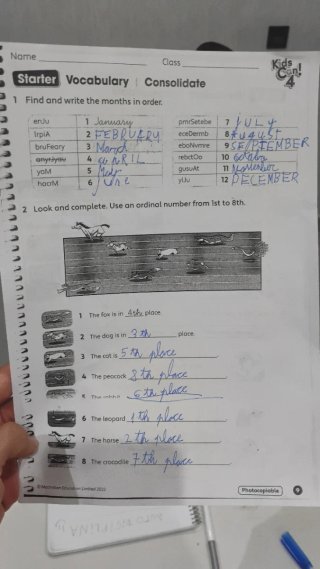 Name
Class
Kids Can! 4
Starter Vocabulary | Consolidate
1 Find and write the months in order.
enJu 1 January
lrpiA 2 FEBRUARY
bruFeary 3 March
anyrJyau 4
yaM 5
haorM 6
pmrSetebe 7 JULY
eceDermb 8 August
eboNvmre 9 SEPTEMBER
rebctOo 10 October
gusuAt 11 November
ylJu 12 DECEMBER
2 Look and complete. Use an ordinal number from 1st to 8th.
1 The fox is in 4th place.
2 The dog is in 3th place.
3 The cat is 5th place
4 The peacock 8th place
5 The rabbit 6th place
6 The leopard 1th place
7 The horse 2th place
8 The crocodile 7th place
© Macmillan Education Limited 2022
Photocopiable
9